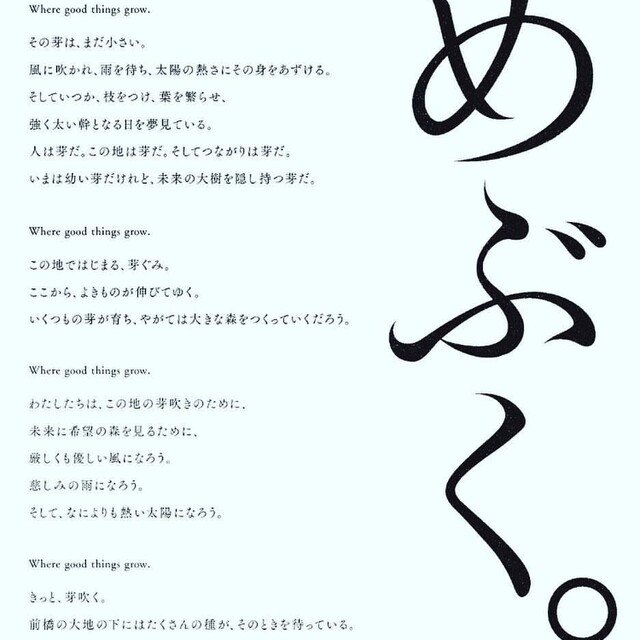 めぶく。
Where good things grow.
その芽は、まだ小さい。
風に吹かれ、雨を待ち、太陽の熱さにその身をあずける。
そしていつか、枝をつけ、葉を繁らせ、
強く太い幹となる日を夢見ている。
人は芽だ。この地は芽だ。そしてつながりは芽だ。
いまは幼い芽だけれど、未来の大樹を隠し持つ芽だ。
Where good things grow.
この地ではじまる、芽ぐみ。
ここから、よきものが伸びてゆく。
いくつもの芽が育ち、やがては大きな森をつくっていくだろう。
Where good things grow.
わたしたちは、この地の芽吹きのために、
未来に希望の森を見るために、
厳しくも優しい風になろう。
慈しみの雨になろう。
そして、なによりも熱い太陽になろう。
Where good things grow.
きっと、芽吹く。
前橋の大地の下にはたくさんの種が、そのときを待っている。